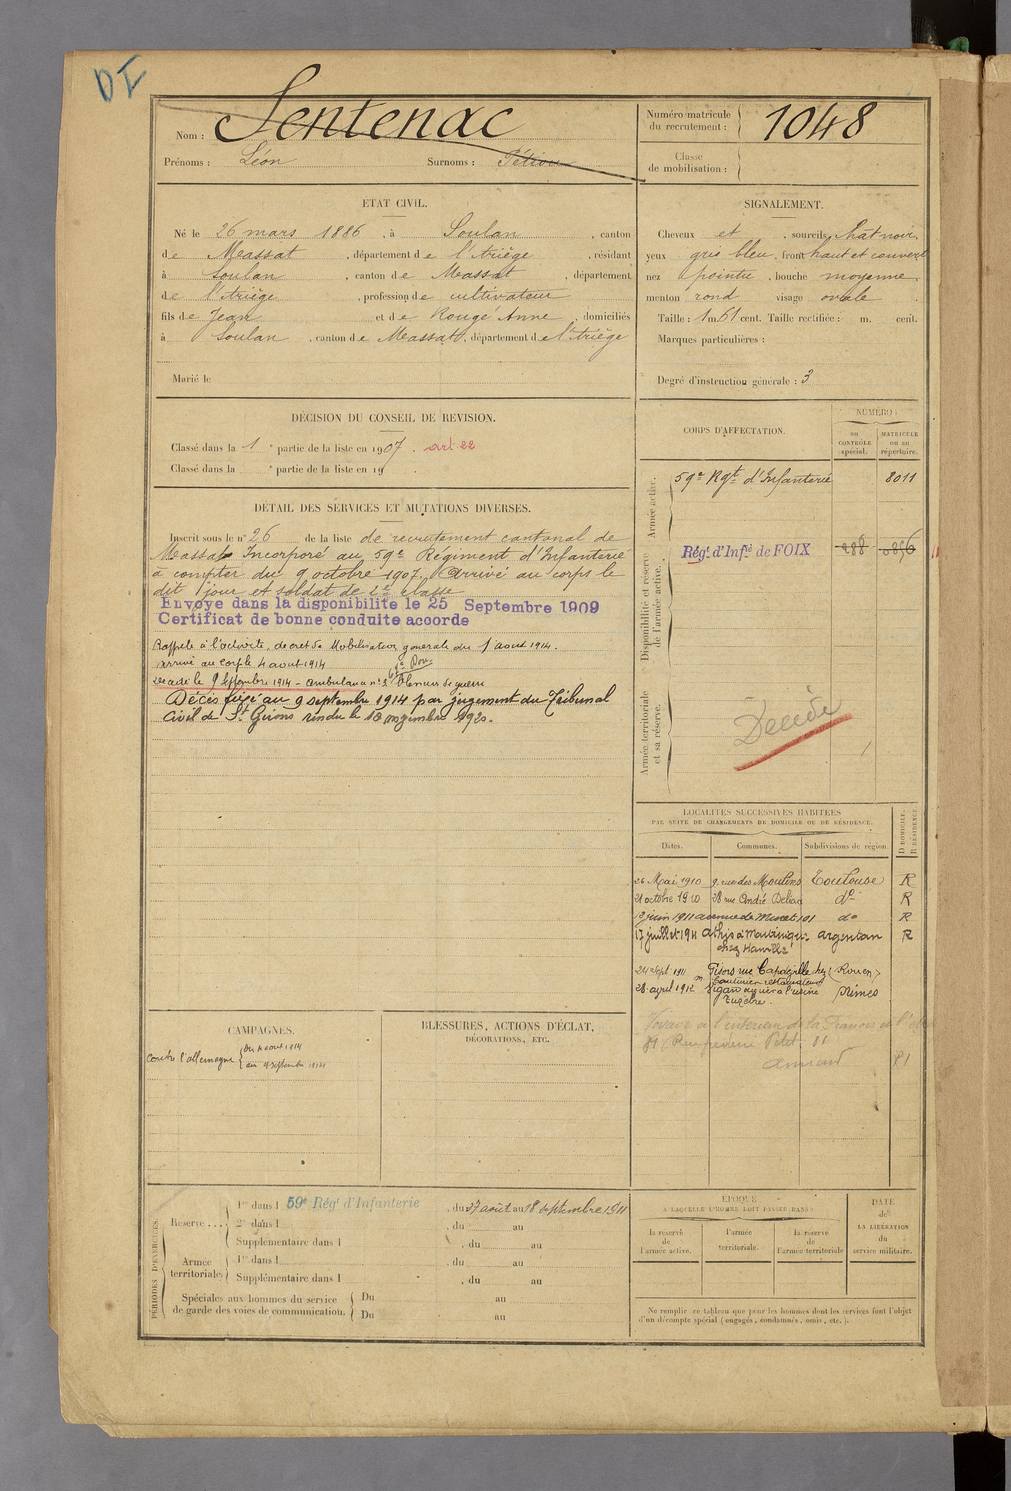 DI
Nom : Sentenac
Prénoms : Léon Surnoms : Pétiou
Numéro matricule du recrutement : 1048
Classe de mobilisation :
ETAT CIVIL.
Né le 26 mars 1886, à Soulan, canton
de Massat, département de l'Ariège, résidant
à Soulan, canton de Massat, département
de l'Ariège, profession de cultivateur
fils de Jean et de Rougé Anne, domiciliés
à Soulan, canton de Massat, département de l'Ariège
Marié le
SIGNALEMENT.
Cheveux et , sourcils chat noir,
yeux gris bleu, front haut et couvert
nez pointu, bouche moyenne,
menton rond visage ovale.
Taille : 1 m. 61 cent. Taille rectifiée : m. cent.
Marques particulières :
Degré d'instruction générale : 3
DÉCISION DU CONSEIL DE REVISION.
Classé dans la 1e partie de la liste en 1907. art. 22
Classé dans la e partie de la liste en 19 .
CORPS D'AFFECTATION.
NUMÉRO :
au CONTRÔLE spécial.
MATRICULE ou au répertoire.
Armée active.
59e Rgt d'Infanterie 8011
Disponibilité et réserve de l'armée active.
Régt d'Infie de FOIX
Armée territoriale et sa réserve.
Décédé
DÉTAIL DES SERVICES ET MUTATIONS DIVERSES.
Inscrit sous le n° 26 de la liste de recrutement cantonal de
Massat. Incorporé au 59e Régiment d'Infanterie
à compter du 9 octobre 1907. Arrivé au corps le
dit jour et soldat de 2e classe
Envoyé dans la disponibilité le 25 Septembre 1909
Certificat de bonne conduite accordé
Rappelé à l'activité, décret de Mobilisation générale du 1 août 1914.
Arrivé au corps le 4 août 1914
Décédé le 9 septembre 1914 - ambulance n° 2
Décès fixé au 9 septembre 1914 par jugement du Tribunal
Civil de St Girons rendu le
LOCALITÉS SUCCESSIVES HABITÉES
PAR SUITE DE CHANGEMENTS DE DOMICILE OU DE RÉSIDENCE.
Dates. Communes. Subdivisions de région. D DOMICILE. R RÉSIDENCE.
26 Mai 1910 9, rue des Moulins Toulouse R
21 octobre 1910 28 rue André Delieu do R
13 juin 1911 avenue de Muret 101 do R
17 juillet 1911 Argentan R
24 sept 1911 Gisors rue Cappeville chez (Rouen)
Couturier restaurateur
28 avril 1912 Vigan à l'usine Nîmes
CAMPAGNES.
Contre l'Allemagne { du 4 août 1914
au 9 septembre 1914
BLESSURES, ACTIONS D'ÉCLAT,
DÉCORATIONS, ETC.
PÉRIODES D'EXERCICES.
Réserve.... 1re dans l 59e Régt d'Infanterie, du 27 août au 18 septembre 1911
2e dans l , du au
Supplémentaire dans l , du au
Armée territoriale 1re dans l , du au
Supplémentaire dans l , du au
Spéciales aux hommes du service de garde des voies de communication. Du au
Du au
ÉPOQUE
A LAQUELLE L'HOMME DOIT PASSER DANS :
la réserve de l'armée active.
l'armée territoriale.
la réserve de l'armée territoriale
DATE de LA LIBÉRATION du service militaire.
Ne remplir ce tableau que pour les hommes dont les services font l'objet
d'un décompte spécial (engagés, condamnés, omis, etc.).